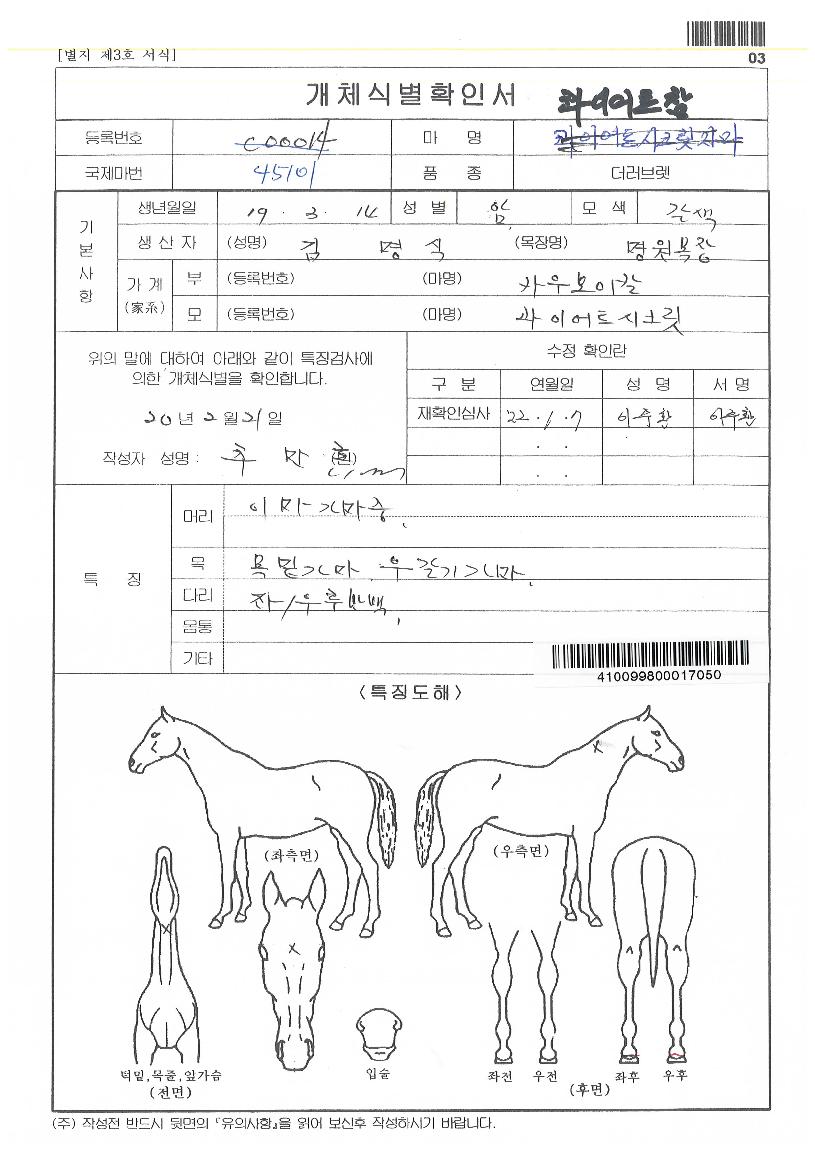 [별지 제3호 서식]
03
개체식별확인서
콰이어트참
등록번호 C00014 마 명 콰이어트시크릿자마
국제마번 45101 품 종 더러브렛
기본사항
생년월일 19 . 3 . 14 성 별 암 모 색 갈색
생 산 자 (성명) 김 명 식 (목장명) 명원목장
가 계 (家系)
부 (등록번호) (마명) 카우보이칼
모 (등록번호) (마명) 콰이어트시크릿
위의 말에 대하여 아래와 같이 특징검사에
의한 개체식별을 확인합니다.
20년 2월21일
작성자 성명 : 추 만 (인)
수정 확인란
구 분 연월일 성 명 서 명
재확인심사 22 . 1 . 7 이주환 이주환
. .
. .
특 징
머리 이마가마중.
목 목밑가마, 우갈기가마.
다리 좌/우후
몸통
기타
410099800017050
<특징도해>
(좌측면) (우측면)
턱밑,목줄,앞가슴
(전면)
입술
좌전 우전
좌후 우후
(후면)
(주) 작성전 반드시 뒷면의 『유의사항』을 읽어 보신후 작성하시기 바랍니다.